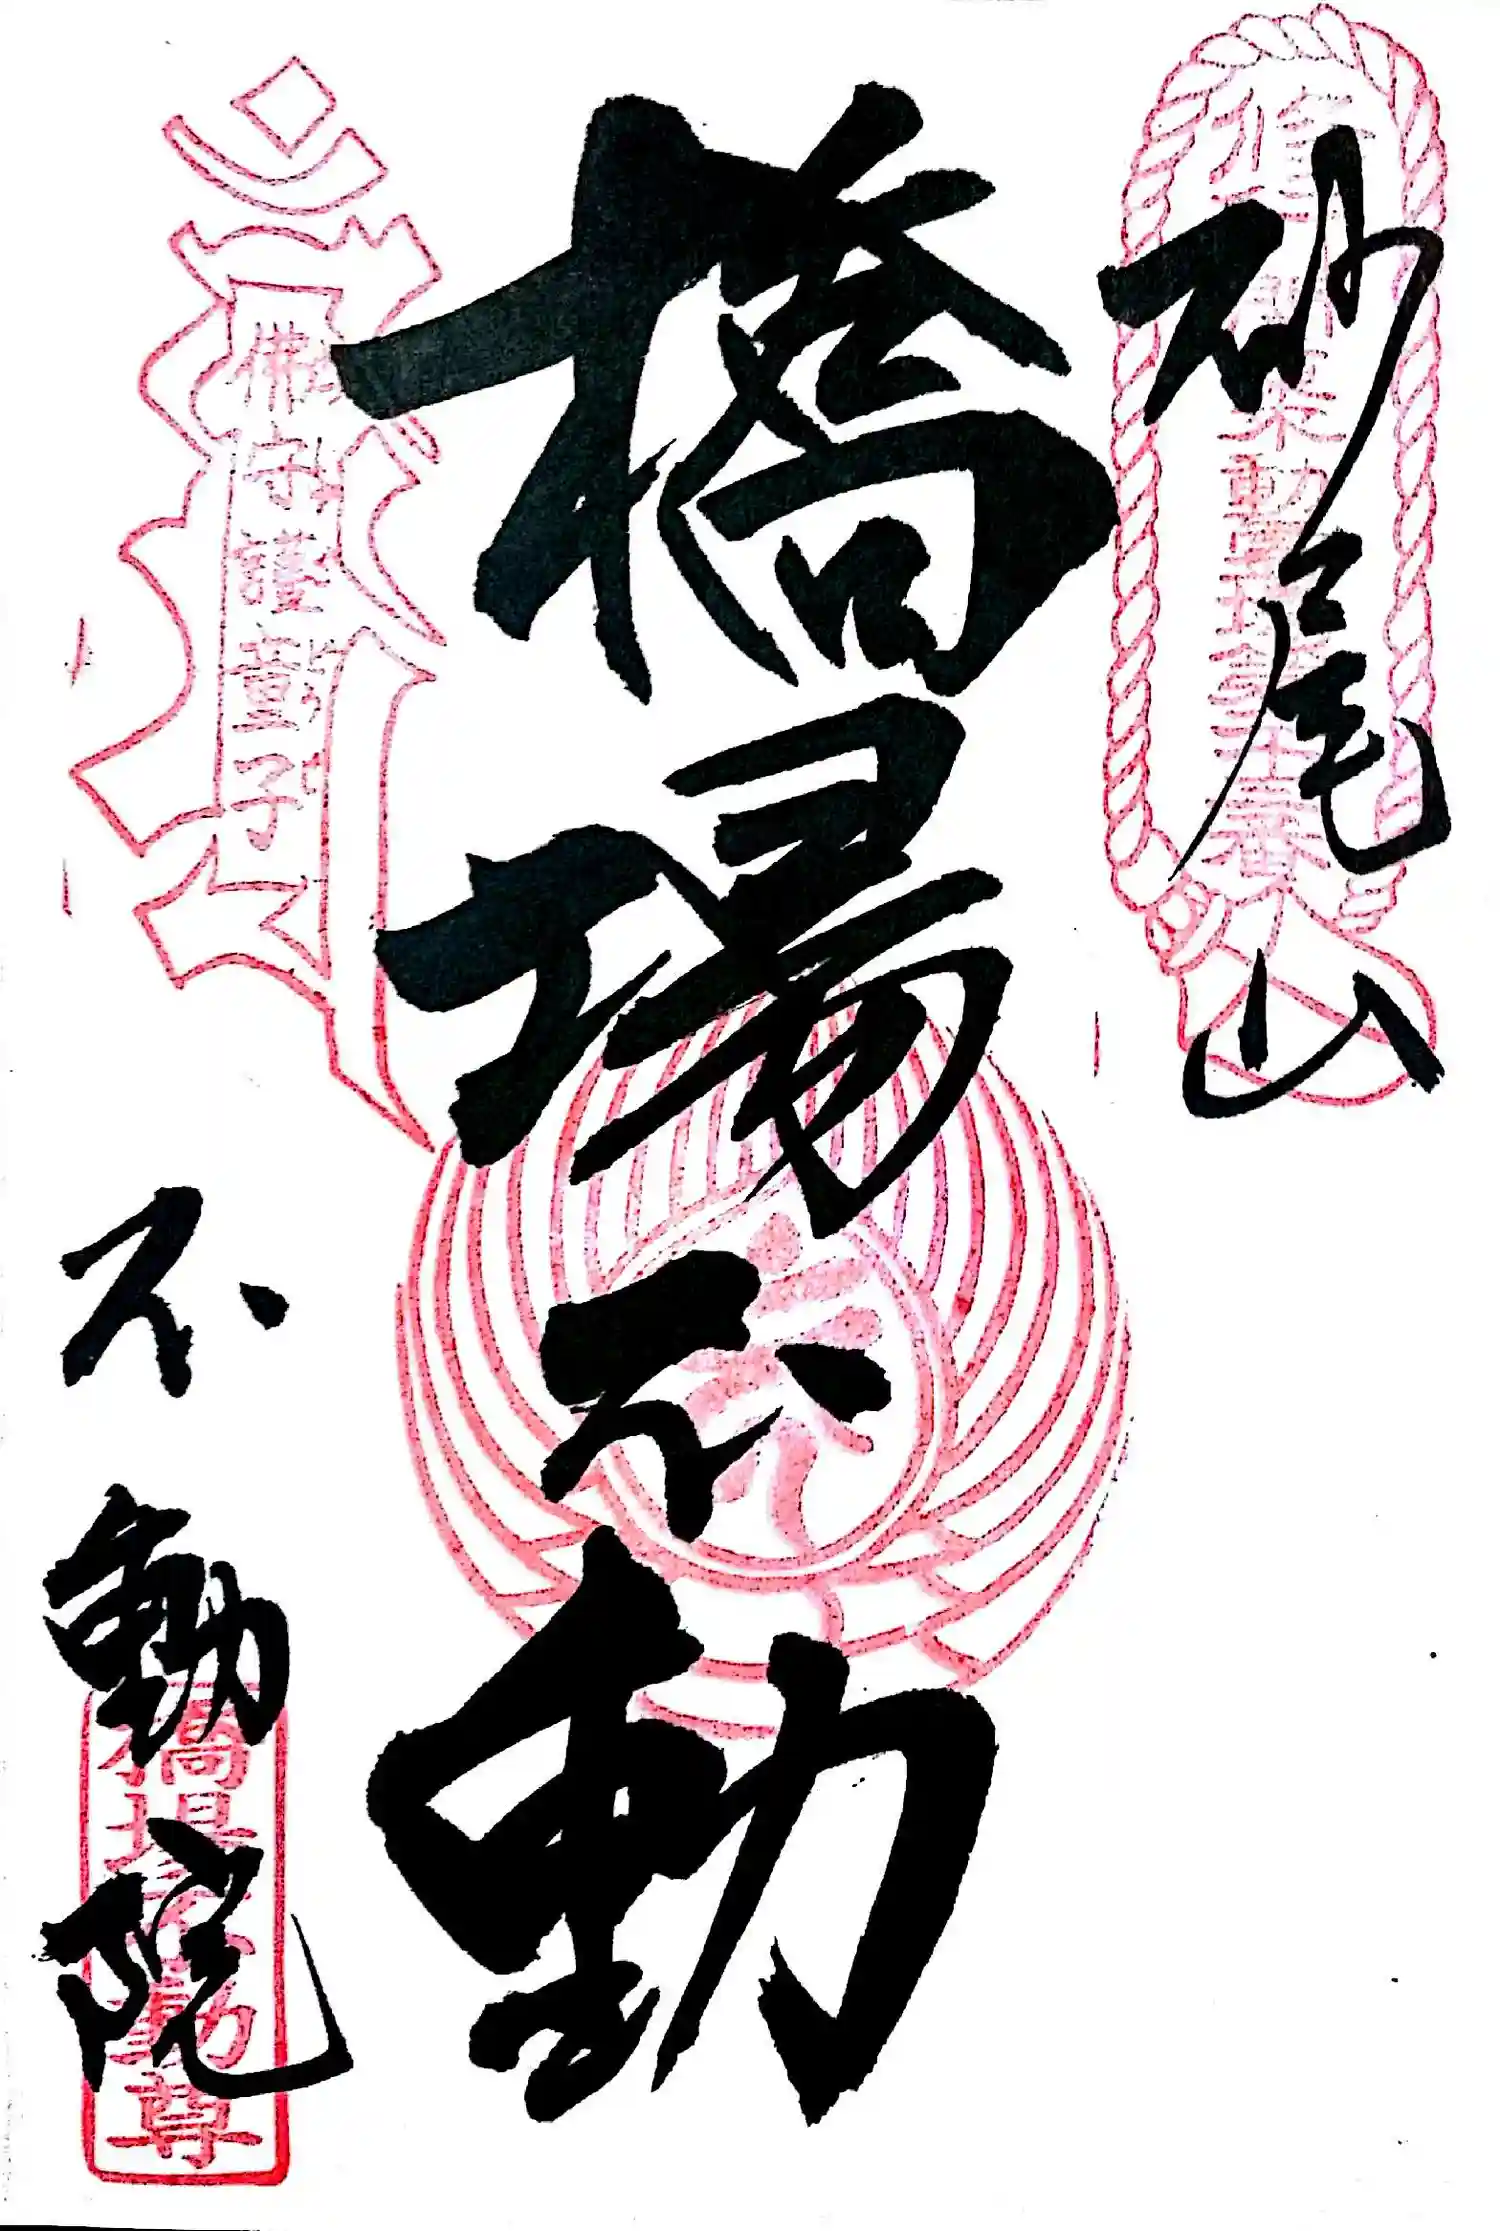 砂尾山
橋場不動
守護童子
不動院
橋場不動尊